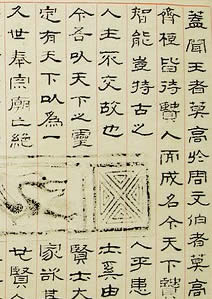 蓋聞王者莫高於周文伯者莫高
齊桓皆待賢人而成名今天下賢
智能豈持古之人乎患
人主不交故也士奚由
今吾以天下之靈賢士大
定有天下以為一家欲其
久世奉宗廟亡絕世賢人